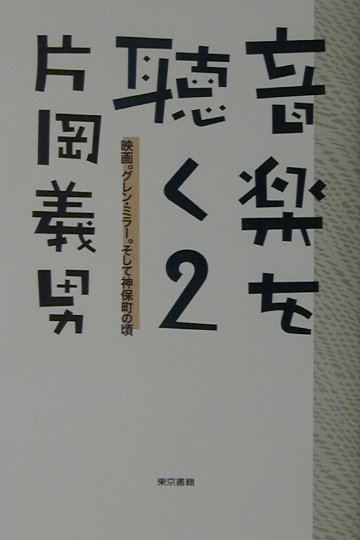 音楽を
聴く2
映画。グレン・ミラー。そして神保町の頃
片岡義男
東京書籍